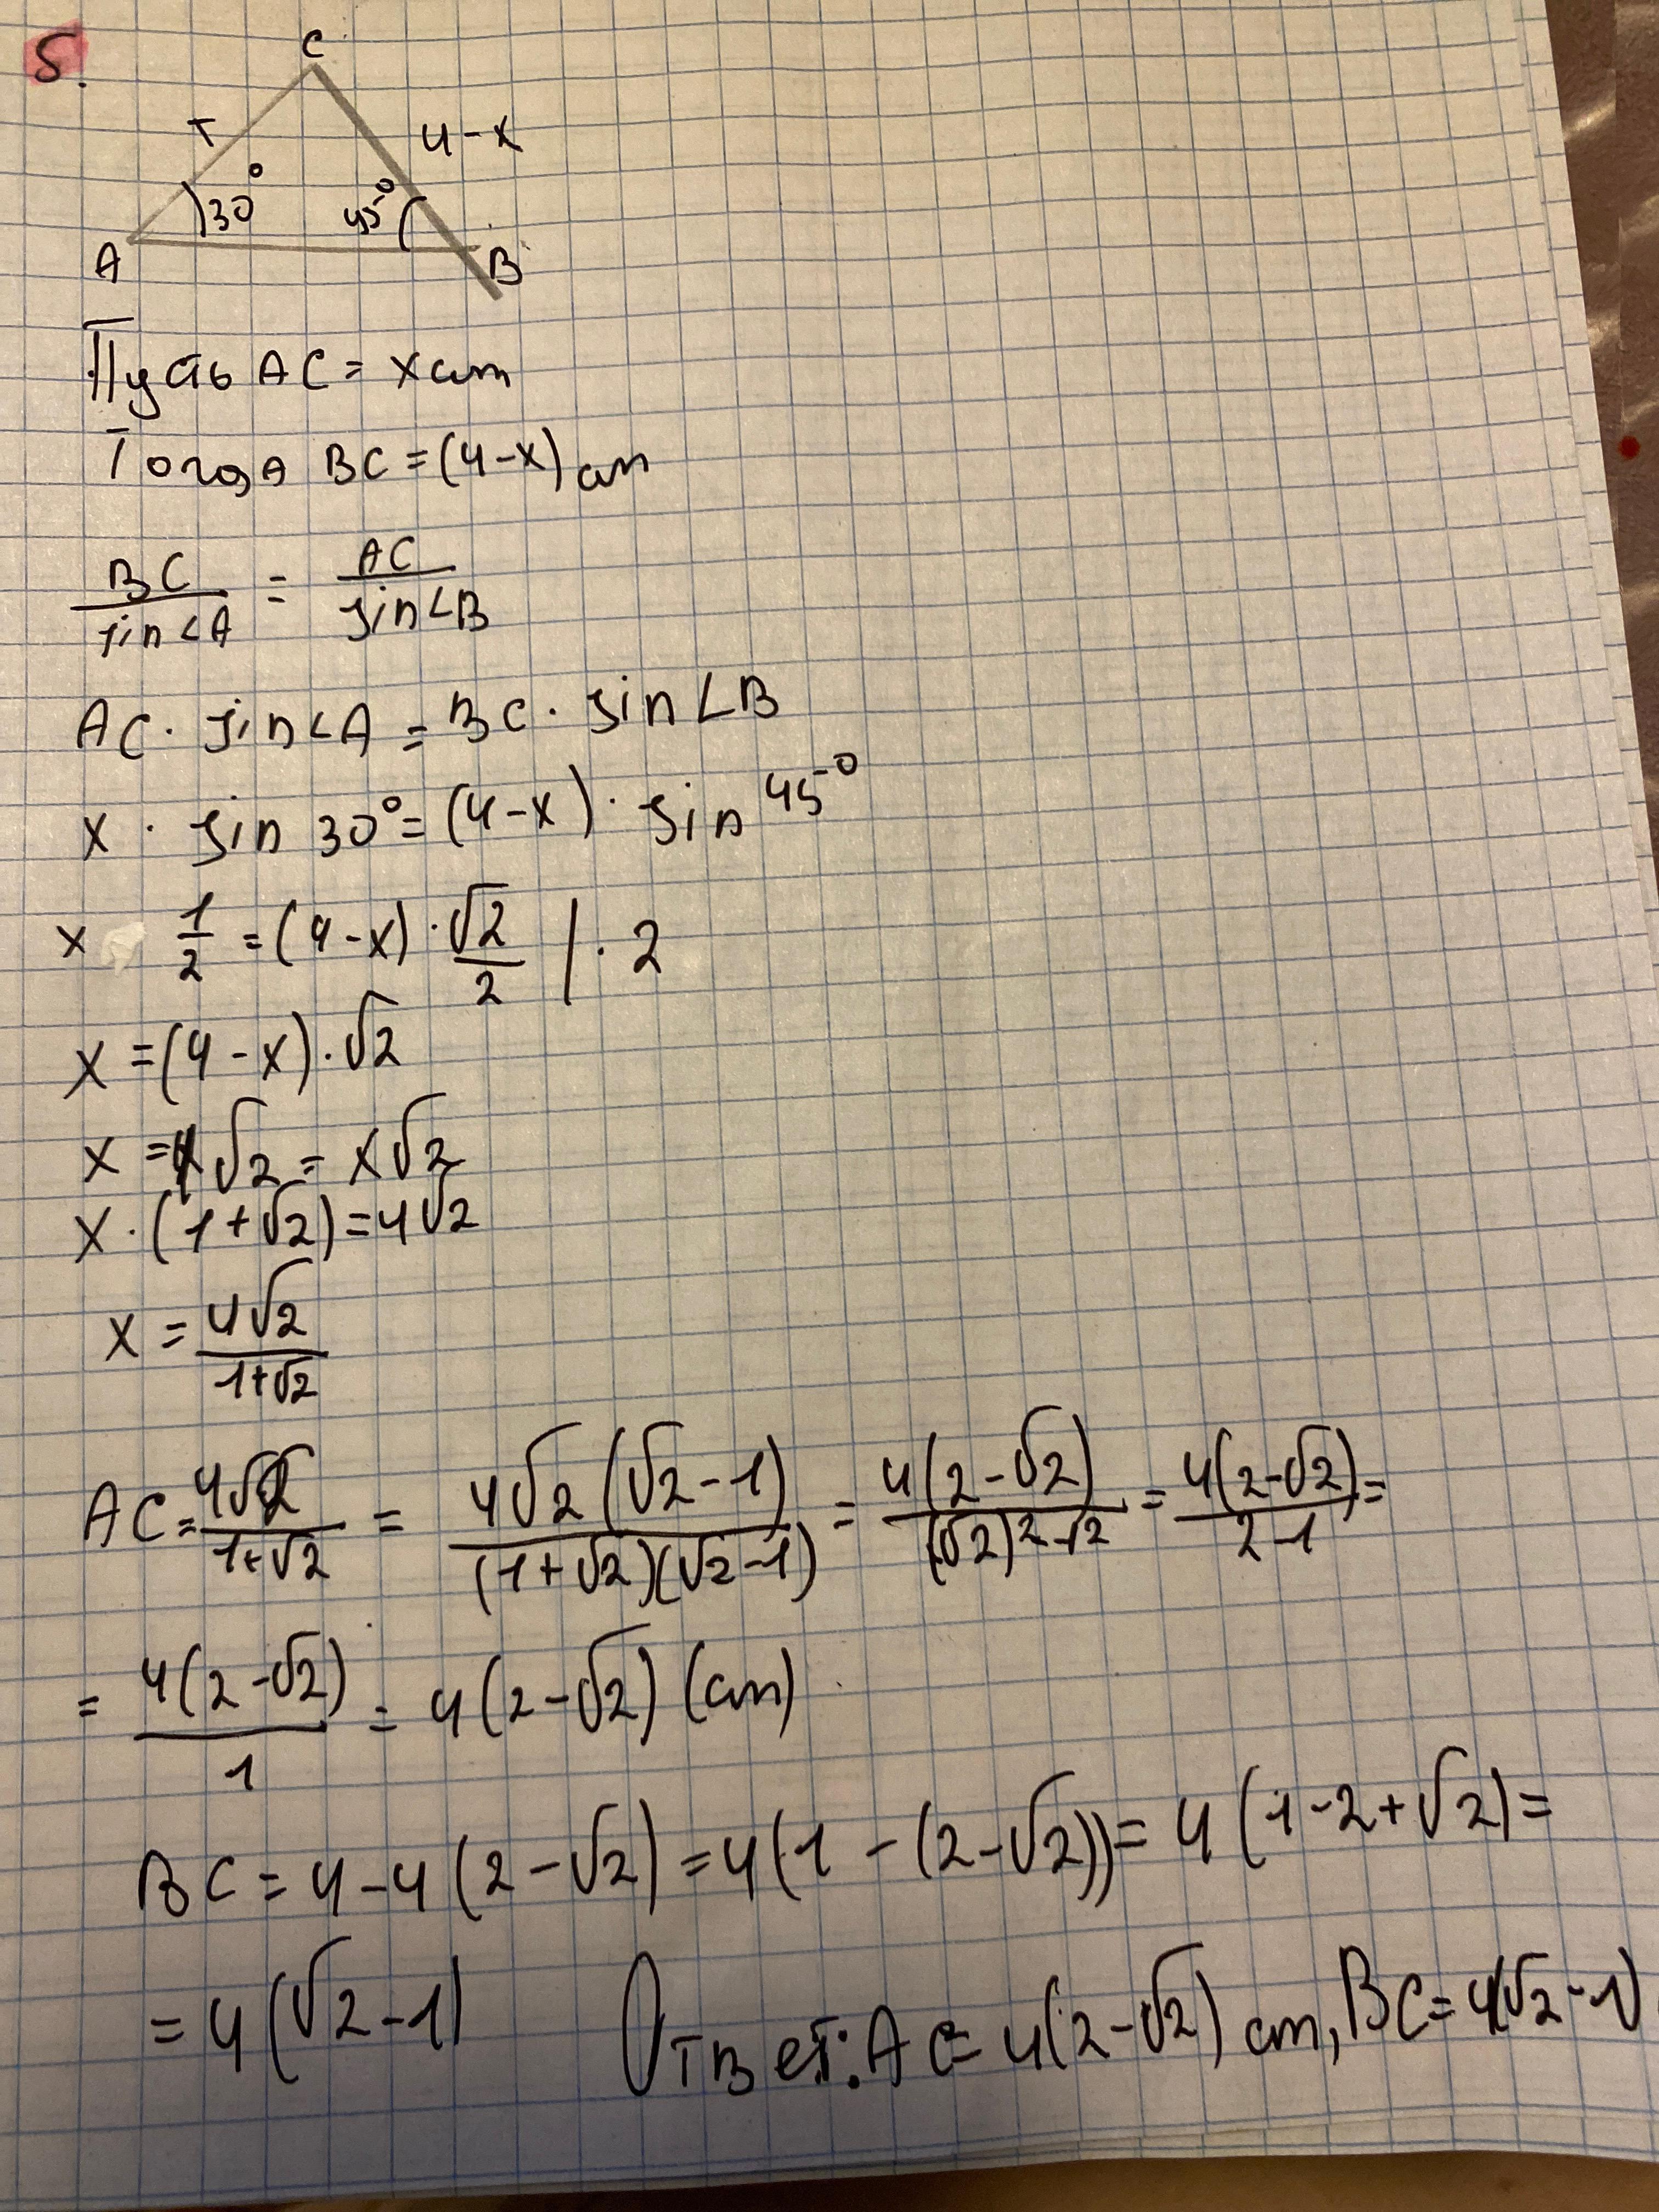 5.
C
T
4-x
30°
45°
A
B
Пусть AC = x cm
Тогда BC = (4-x) cm
BC/sin∠A = AC/sin∠B
AC · sin∠A = BC · sin∠B
x · sin 30° = (4-x) · sin 45°
x 1/2 = (4-x) · √2/2 | · 2
x = (4-x) · √2
x = 4√2 = x√2
x · (1+√2) = 4√2
x = 4√2/1+√2
AC = 4√2/1+√2 = 4√2(√2-1)/(1+√2)(√2-1) = 4(2-√2)/(√2)²-12 = 4(2-√2)/2-1 =
= 4(2-√2)/1 = 4(2-√2) (cm)
BC = 4-4(2-√2) = 4(1-(2-√2)) = 4(1-2+√2) =
= 4(√2-1) Ответ: AC = 4(2-√2) cm, BC = 4(√2-1)